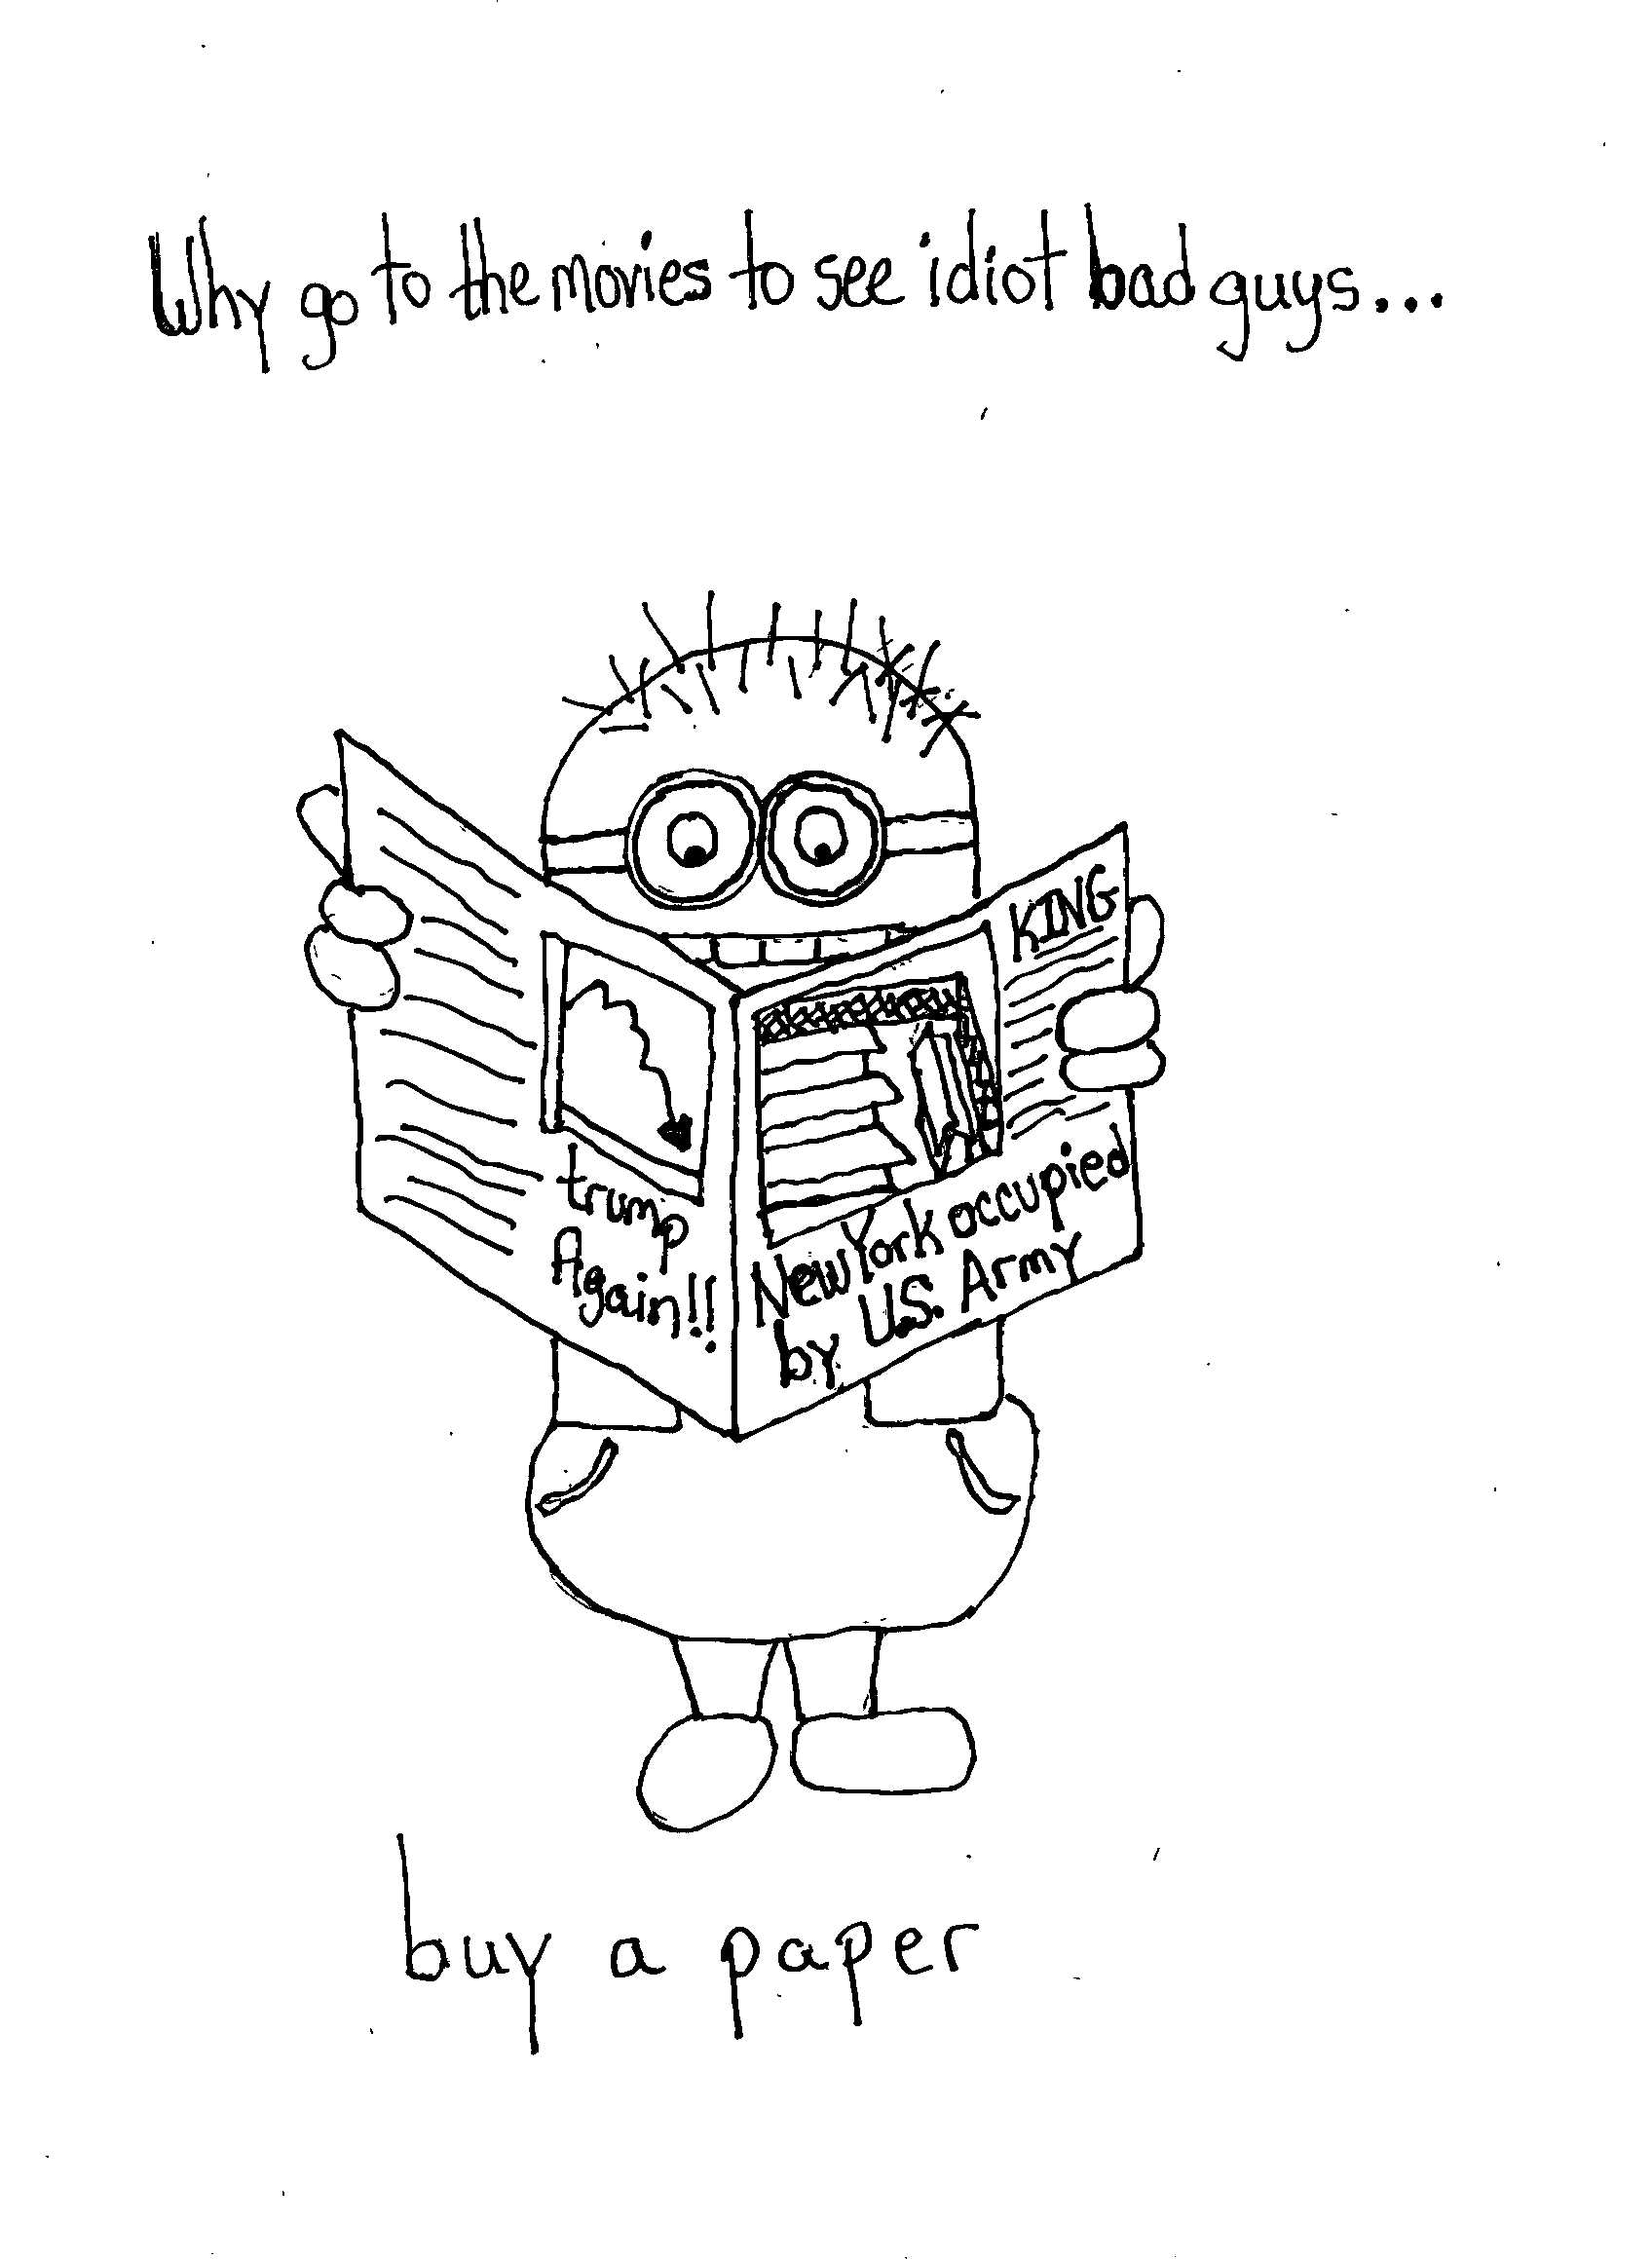 Why go to the movies to see idiot bad guys...
KING
trump
Again!!
New York occupied
by U.S. Army
buy a paper